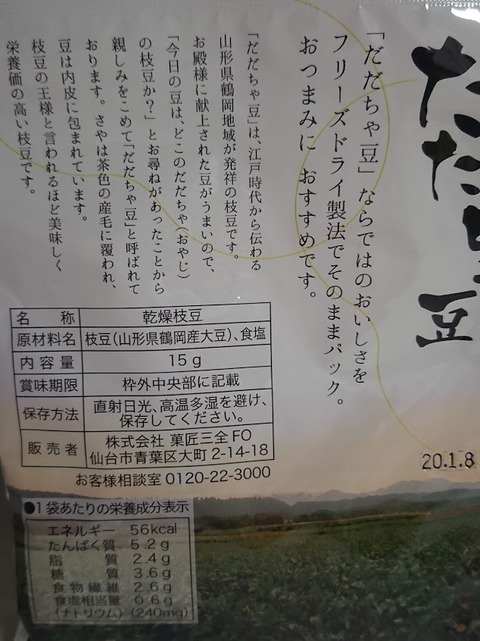 だだちゃ豆
「だだちゃ豆」ならではのおいしさを
フリーズドライ製法でそのままパック。
おつまみに おすすめです。
「だだちゃ豆」は、江戸時代から伝わる
山形県鶴岡地域が発祥の枝豆です。
お殿様に献上された豆がうまいので、
「今日の豆は、どこのだだちゃ(おやじ)
の枝豆か?」とお尋ねがあったことから
親しみをこめて「だだちゃ豆」と呼ばれて
おります。さやは茶色の産毛に覆われ、
豆は内皮に包まれています。
枝豆の王様と言われるほど美味しく
栄養価の高い枝豆です。
名 称 乾燥枝豆
原材料名 枝豆(山形県鶴岡産大豆)、食塩
内容量 15g
賞味期限 枠外中央部に記載
保存方法 直射日光、高温多湿を避け、
保存してください。
販売者 株式会社 菓匠三全FO
仙台市青葉区大町2-14-18
お客様相談室 0120-22-3000
20.1.8
●1袋あたりの栄養成分表示
エネルギー 56kcal
たんぱく質 5.2g
脂質 2.4g
糖質 3.6g
食物繊維 2.6g
食塩相当量 0.6g
(ナトリウム) (240mg)